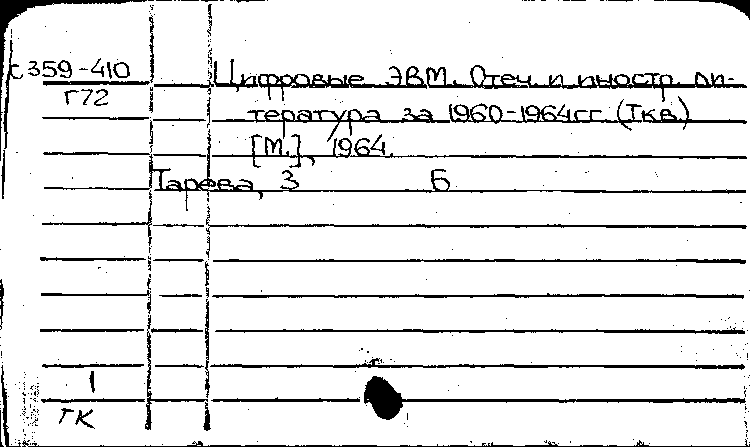 с359-410
Г72
Цифровые ЭВМ. Отеч. и иностр. ли-
тература за 1960-1964гг. (Iкв.)
[М.], 1964.
Тарева, З Б
1
ГК